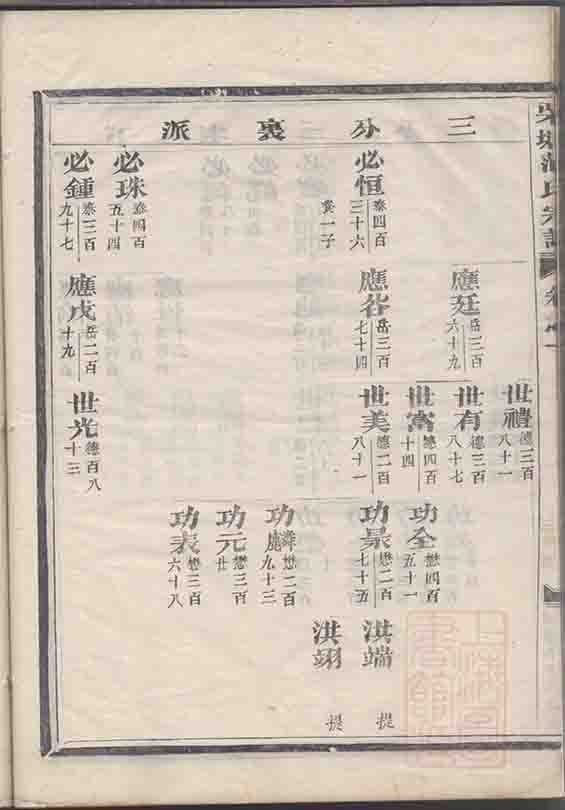 三分裏派
必恒 泰四百三十六
必珠 泰四百五十四
必鍾 泰三百九十七
應廷 岳三百六十九
應谷 岳三百七十四
應戊 岳二百十九
世禮 德三百八十一
世有 德三百八十七
世富 德四百十四
世美 德二百八十一
世光 德百八十三
功全 懋四百五十一
功杲 懋二百七十五
懋二百九十三
功元 懋三百廿
功表 懋三百六十八
洪端 提
洪翊 提